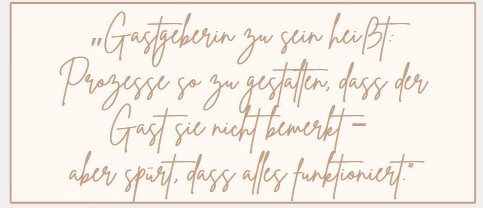 „Gastgeberin zu sein heißt:
Prozesse so zu gestalten, dass der
Gast sie nicht bemerkt –
aber spürt, dass alles funktioniert.“